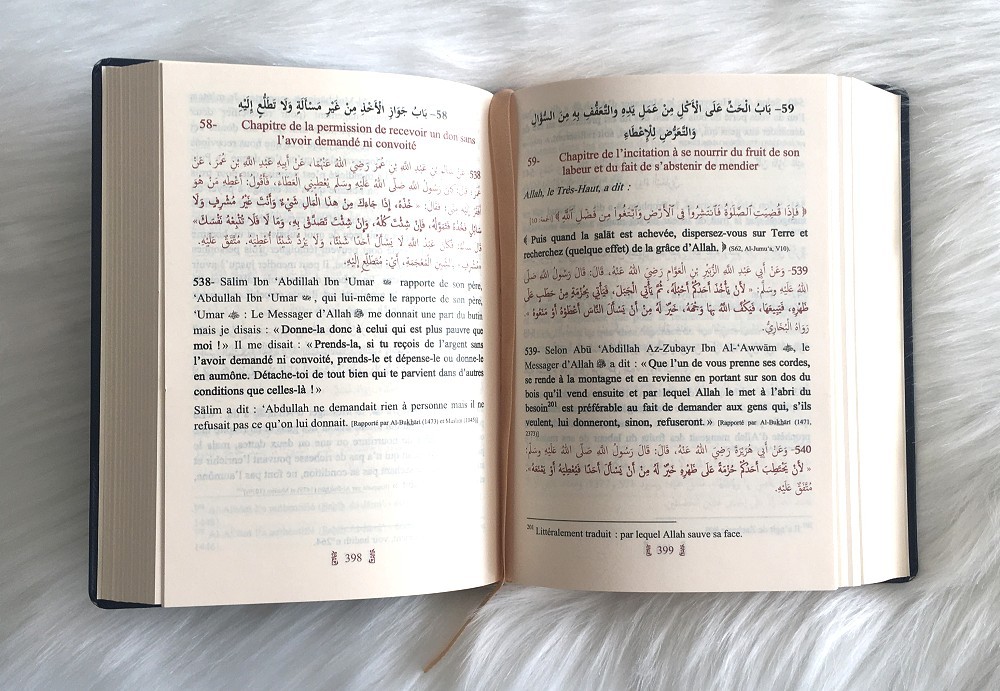 58- بَابُ جَوَازِ الْأَخْذِ مِنْ غَيْرِ مَسْأَلَةٍ وَلَا تَطَلُّعٍ إِلَيْهِ
58- Chapitre de la permission de recevoir un don sans
l'avoir demandé ni convoité
538 عَنْ سَالِمِ بْنِ عَبْدِ اللَّهِ بْنِ عُمَرَ رَضِيَ اللَّهُ عَنْهُمَا، عَنْ أَبِيهِ عَبْدِ اللَّهِ بْنِ عُمَرَ، عَنْ
عُمَرَ، قَالَ: كَانَ رَسُولُ اللَّهِ صَلَّى اللَّهُ عَلَيْهِ وَسَلَّمَ يُعْطِينِي الْعَطَاءَ، فَأَقُولُ: أَعْطِهِ مَنْ هُوَ
أَفْقَرُ إِلَيْهِ مِنِّي، فَقَالَ: «خُذْهُ، إِذَا جَاءَكَ مِنْ هَذَا الْمَالِ شَيْءٌ وَأَنْتَ غَيْرُ مُشْرِفٍ وَلَا
سَائِلٍ فَخُذْهُ فَتَمَوَّلْهُ، فَإِنْ شِئْتَ كُلْهُ، وَإِنْ شِئْتَ تَصَدَّقْ بِهِ، وَمَا لَا فَلَا تُتْبِعْهُ نَفْسَكَ»
قَالَ سَالِمٌ: فَكَانَ عَبْدُ اللَّهِ لَا يَسْأَلُ أَحَدًا شَيْئًا، وَلَا يَرُدُّ شَيْئًا أُعْطِيَهُ. مُتَّفَقٌ عَلَيْهِ.
«مُشْرِفٍ» بِالشِّينِ الْمُعْجَمَةِ، أَيْ: مُتَطَلِّعٍ إِلَيْهِ.
538- Sālim Ibn 'Abdillah Ibn 'Umar rapporte de son père,
'Abdullah Ibn 'Umar , qui lui-même le rapporte de son père,
'Umar : Le Messager d'Allah ﷺ me donnait une part du butin
mais je disais : « Donne-la donc à celui qui est plus pauvre que
moi ! » Il me disait : « Prends-la, si tu reçois de l'argent sans
l'avoir demandé ni convoité, prends-le et dépense-le ou donne-le
en aumône. Détache-toi de tout bien qui te parvient dans d'autres
conditions que celles-là ! »
Sālim a dit : 'Abdullah ne demandait rien à personne mais il ne
refusait pas ce qu'on lui donnait. [Rapporté par Al-Bukhāri (1473) et Muslim (1045)]
398
59- بَابُ الْحَثِّ عَلَى الْأَكْلِ مِنْ عَمَلِ يَدِهِ والتَّعَفُّفِ بِهِ مِنَ السُّؤَالِ
وَالتَّعَرُّضِ لِلْإِعْطَاءِ
59- Chapitre de l'incitation à se nourrir du fruit de son
labeur et du fait de s'abstenir de mendier
Allah, le Très-Haut, a dit :
﴿ فَإِذَا قُضِيَتِ ٱلصَّلَوٰةُ فَٱنتَشِرُوا۟ فِى ٱلْأَرْضِ وَٱبْتَغُوا۟ مِن فَضْلِ ٱللَّهِ ﴾ [الجمعة: 10]
﴾ Puis quand la salāt est achevée, dispersez-vous sur Terre et
recherchez (quelque effet) de la grâce d'Allah. ﴿ (S62, Al-Jumu'a, V10).
539- وَعَنْ أَبِي عَبْدِ اللَّهِ الزُّبَيْرِ بْنِ الْعَوَّامِ رَضِيَ اللَّهُ عَنْهُ، قَالَ: قَالَ رَسُولُ اللَّهِ صَلَّى
اللَّهُ عَلَيْهِ وَسَلَّمَ: «لَأَنْ يَأْخُذَ أَحَدُكُمْ أَحْبُلَهُ، ثُمَّ يَأْتِيَ الْجَبَلَ، فَيَأْتِيَ بِحُزْمَةٍ مِنْ حَطَبٍ عَلَى
ظَهْرِهِ، فَيَبِيعَهَا، فَيَكُفَّ اللَّهُ بِهَا وَجْهَهُ، خَيْرٌ لَهُ مِنْ أَنْ يَسْأَلَ النَّاسَ أَعْطَوْهُ أَوْ مَنَعُوهُ».
رَوَاهُ الْبُخَارِيُّ.
539- Selon Abū 'Abdillah Az-Zubayr Ibn Al-'Awwām , le
Messager d'Allah ﷺ a dit : « Que l'un de vous prenne ses cordes,
se rende à la montagne et en revienne en portant sur son dos du
bois qu'il vend ensuite et par lequel Allah le met à l'abri du
besoin201 est préférable au fait de demander aux gens qui, s'ils
veulent, lui donneront, sinon, refuseront. » [Rapporté par Al-Bukhāri (1471,
2373)]
540- وَعَنْ أَبِي هُرَيْرَةَ رَضِيَ اللَّهُ عَنْهُ، قَالَ: قَالَ رَسُولُ اللَّهِ صَلَّى اللَّهُ عَلَيْهِ وَسَلَّمَ:
«لَأَنْ يَحْتَطِبَ أَحَدُكُمْ حُزْمَةً عَلَى ظَهْرِهِ خَيْرٌ لَهُ مِنْ أَنْ يَسْأَلَ أَحَدًا فَيُعْطِيَهُ أَوْ يَمْنَعَهُ».
مُتَّفَقٌ عَلَيْهِ.
201 Littéralement traduit : par lequel Allah sauve sa face.
399